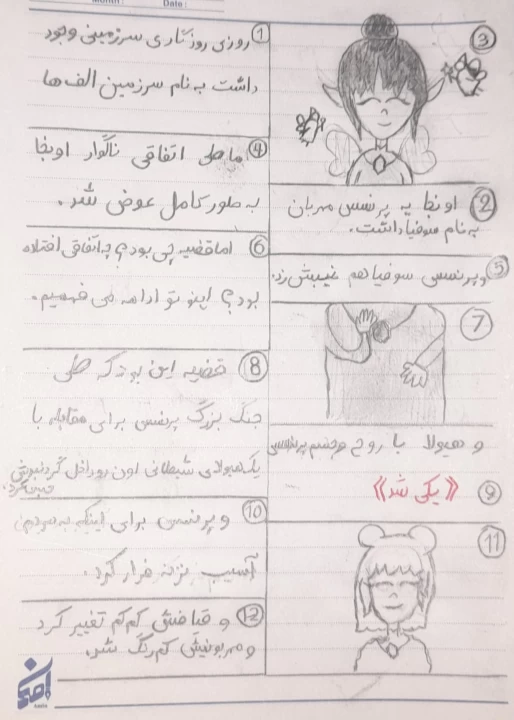 Date :
① روزی روزگاری سرزمینی وجود
داشت به نام سرزمین الف ها
② اونجا یه پرنسس مهربان
به نام سوفیا داشت.
③
④ اما طی اتفاقی ناگوار اونجا
به طور کامل عوض شد.
⑤ و پرنسس سوفیا هم غیبش زد.
⑥ اما قضیه چی بود؟ چه اتفاقی افتاده
بود؟ اینو تو ادامه می فهمیم.
⑦
⑧ قضیه این بود که طی
جنگ بزرگ پرنسس برای مقابله با
یک هیولای شیطانی اون رو داخل گردنبندش
حبس کرد.
و هیولا با روح و جسم پرنسس
⑨ «یکی شد»
⑩ و پرنسس برای اینکه به مردم
آسیب نزنه فرار کرد.
⑪
⑫ و قیافش کم کم تغییر کرد
و مهربونیش کم رنگ شد.